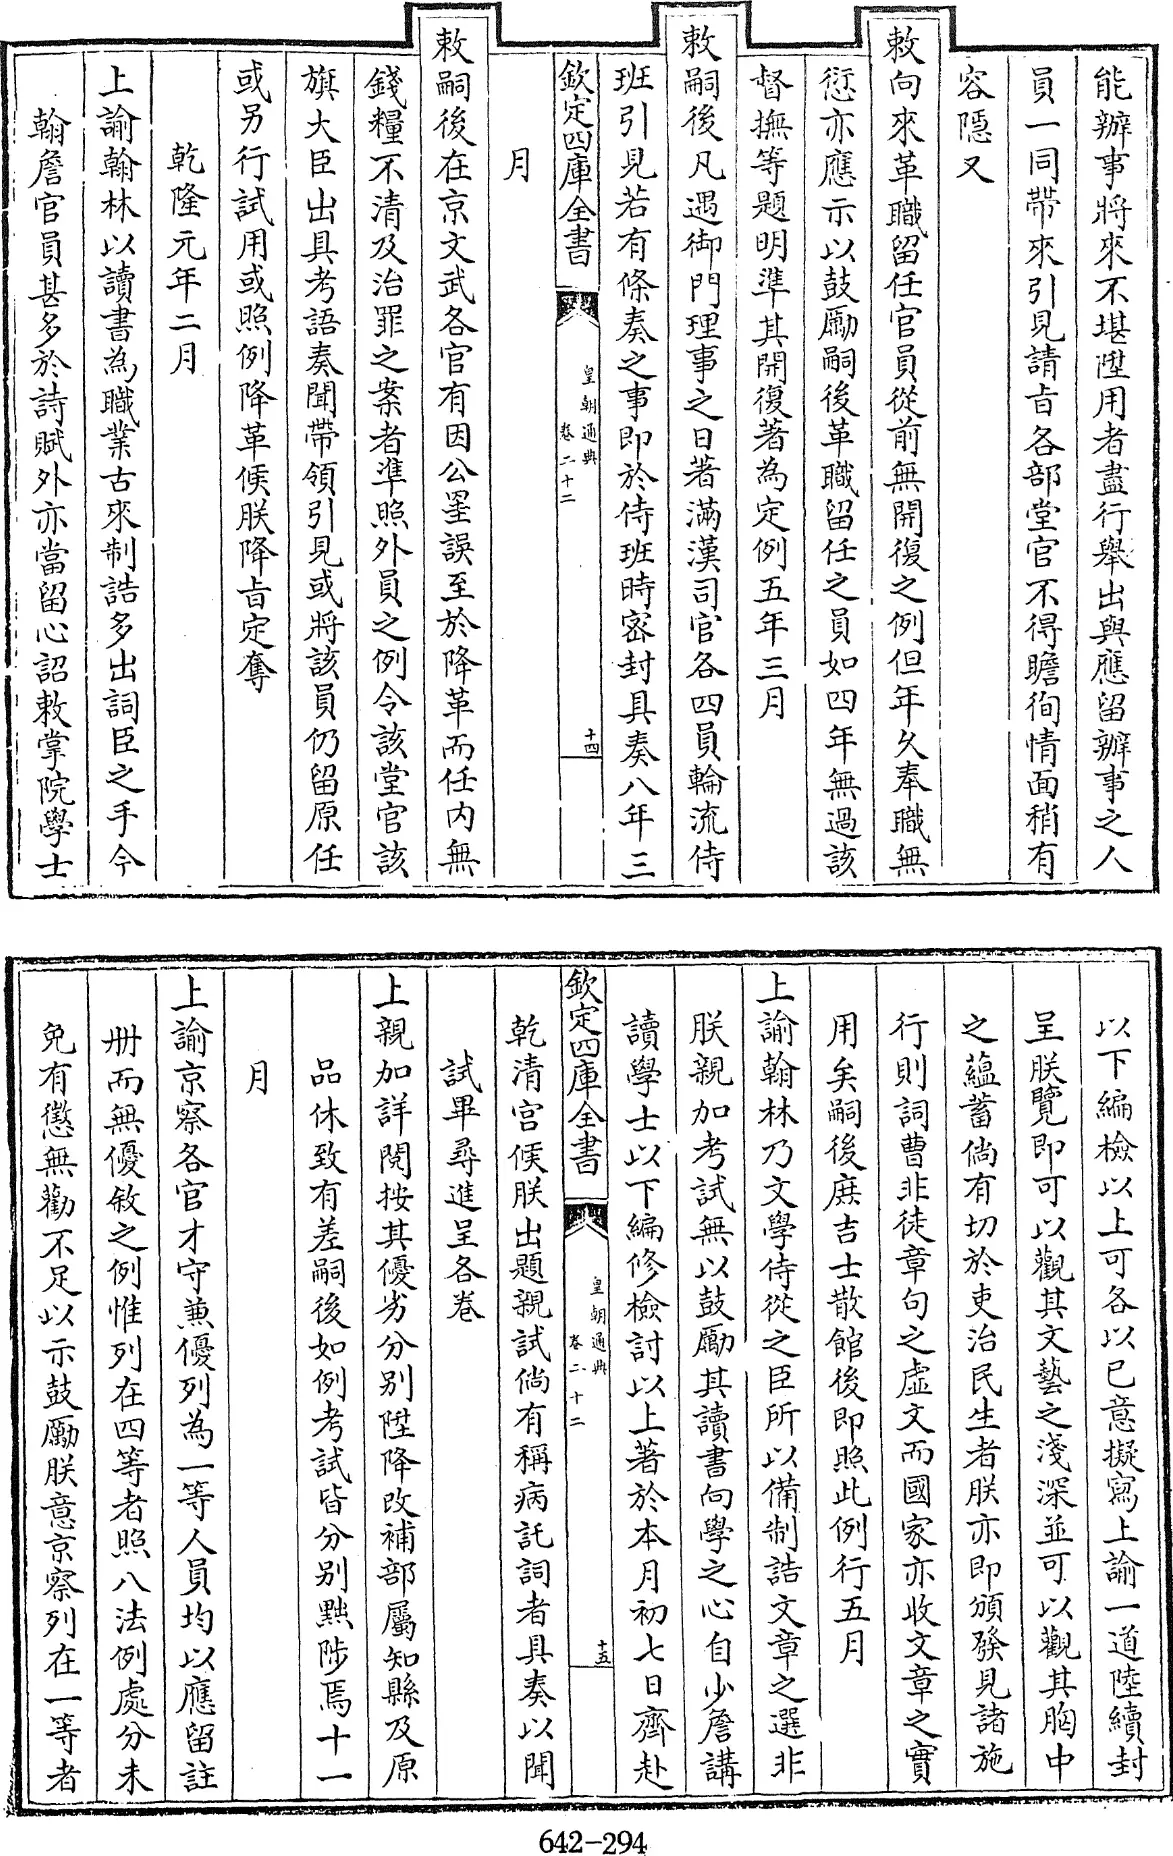 能辦事將來不堪陞用者盡行舉出與應留辦事之人
員一同帶來引見請㫖各部堂官不得瞻徇情面稍有
容隱又
敕向來革職留任官員從前無開復之例但年久奉職無
愆亦應示以鼓勵嗣後革職留任之員如四年無過該
督撫等題明準其開復著為定例五年三月
敕嗣後凡遇御門理事之日著滿漢司官各四員輪流侍
班引見若有條奏之事即於侍班時密封具奏八年三
欽定四庫全書
皇朝通典
卷二十二
十四
月
敕嗣後在京文武各官有因公罣誤至於降革而任内無
錢糧不清及治罪之案者準照外員之例令該堂官該
旗大臣出具考語奏聞帶領引見或將該員仍留原任
或另行試用或照例降革候朕降㫖定奪
乾隆元年二月
上諭翰林以讀書為職業古來制誥多出詞臣之手今
翰詹官員甚多於詩賦外亦當留心詔敕掌院學士
以下編檢以上可各以已意擬寫上諭一道陸續封
呈朕覽即可以觀其文藝之淺深並可以觀其胸中
之蘊蓄倘有切於吏治民生者朕亦即頒發見諸施
行則詞曹非徒章句之虛文而國家亦收文章之實
用矣嗣後庶吉士散館後即照此例行五月
上諭翰林乃文學侍從之臣所以備制誥文章之選非
朕親加考試無以鼓勵其讀書向學之心自少詹講
讀學士以下編修檢討以上著於本月初七日齊赴
欽定四庫全書
皇朝通典
卷二十二
十五
乾清宮候朕出題親試倘有稱病託詞者具奏以聞
試畢尋進呈各卷
上親加詳閱按其優劣分别陞降改補部屬知縣及原
品休致有差嗣後如例考試皆分别黜陟焉十一
月
上諭京察各官才守兼優列為一等人員均以應留註
册而無優敘之例惟列在四等者照八法例處分未
免有懲無勸不足以示鼓勵朕意京察列在一等者
642-294